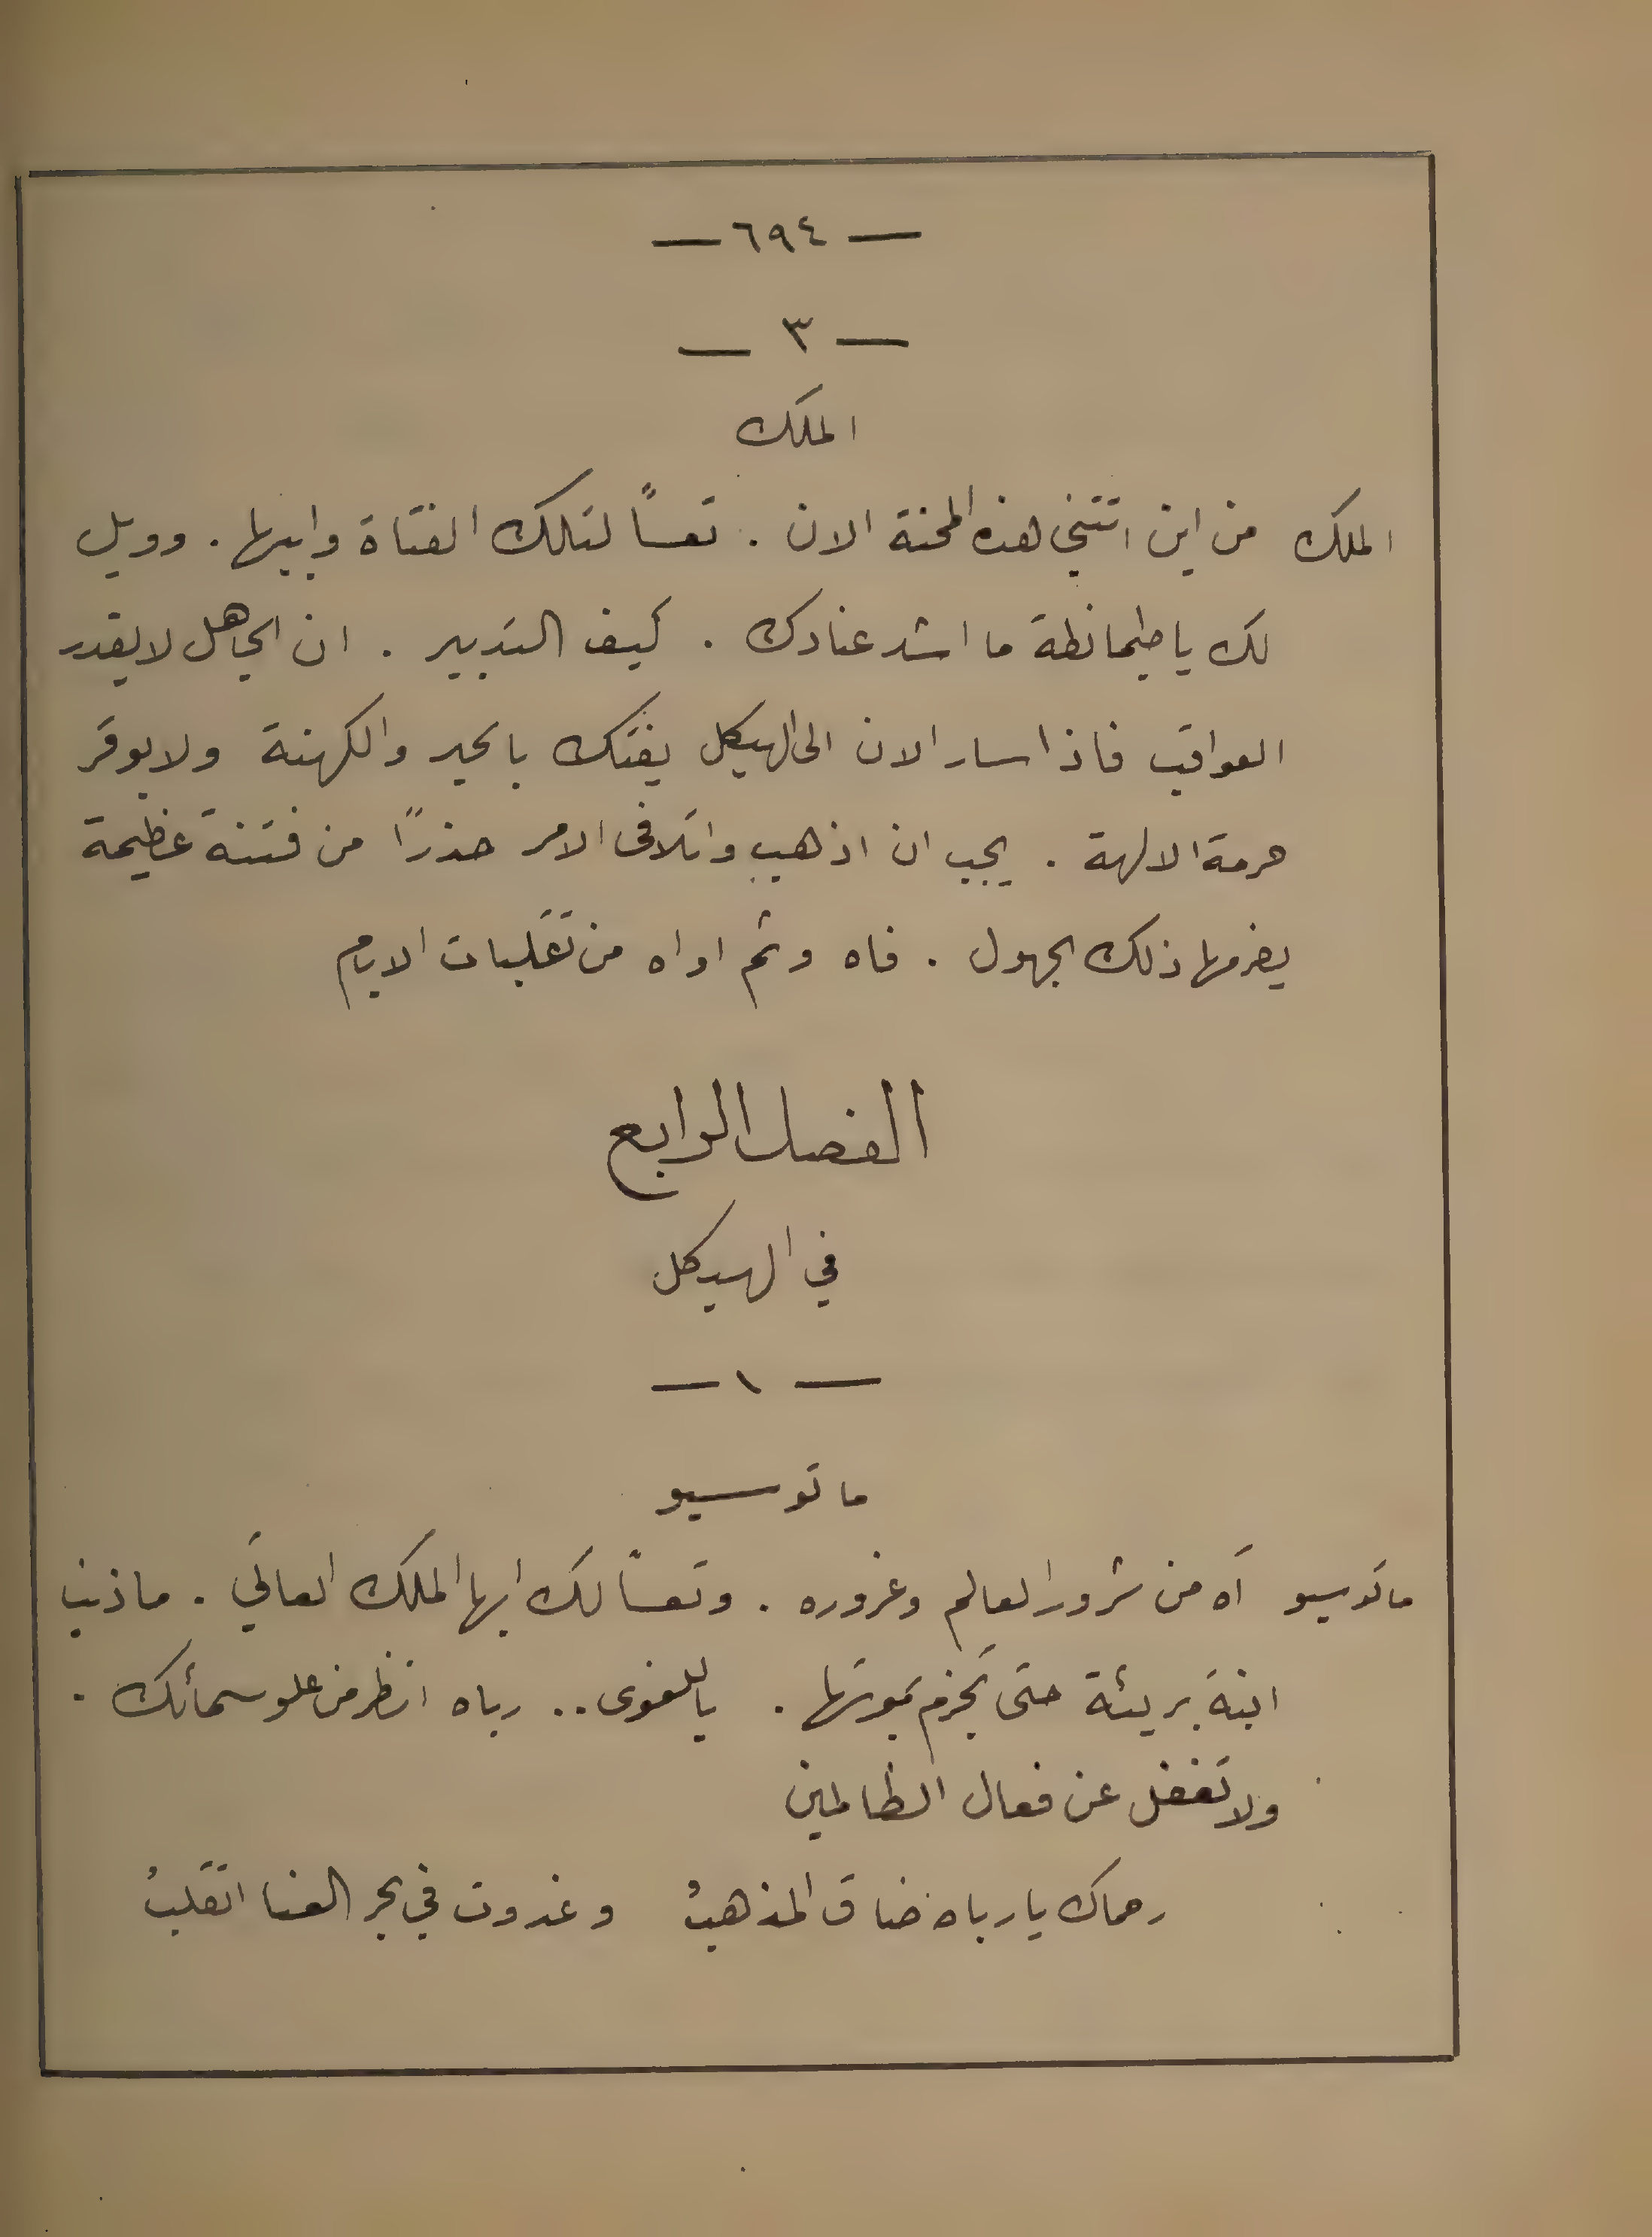 — ٦٩٤ —
— ٣ —
الملك
الملك من اين اتتني هذه المحنة الان . تعساً لتلك الفتاة وابيها . وويل
لك يا طيمانطة ما اشد عنادك . كيف التدبير . ان الجاهل لا يقدر
العواقب فاذا سار الان الى الهيكل يفتك بالحبر والكهنة ولا يوقر
حرمة الالهة . يجب ان اذهب واتلافى الامر حذرًا من فتنة عظيمة
يضرمها ذلك الجهول . فاه وثم اواه من تقلبات الايام
الفصل الرابع
في الهيكل
— ١ —
ماتوسيو
ماتوسيو آه من شرور العالم وغروره . وتعساً لك ايها الملك العاتي . ما ذنب
ابنة بريئة حتى تجزم بموتها . يا للغوى .. رباه انظر من علو سمائك .
ولا تغفل عن فعال الظالمين
رحماك يا رباه ضاق المذهبُ وغدوت في بحر العنا اتقلبُ